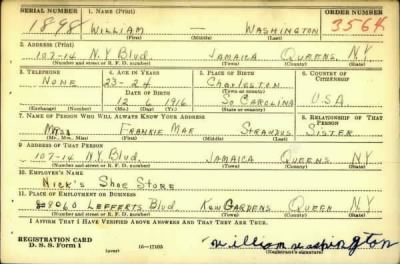 SERIAL NUMBER 1. NAME (Print) ORDER NUMBER
1898 WILLIAM WASHINGTON 3564
(First) (Middle) (Last)
2. ADDRESS (Print)
107-14 N.Y. Blvd. JAMAICA QUEENS, N.Y
(Number and street or R. F. D. number) (Town) (County) (State)
3. TELEPHONE 4. AGE IN YEARS 5. PLACE OF BIRTH 6. COUNTRY OF CITIZENSHIP
NONE 23-24 CHARLESTON
DATE OF BIRTH (Town or county)
12 6 1916 SO CAROLINA U.S.A.
(Exchange) (Number) (Mo.) (Day) (Yr.) (State or country)
7. NAME OF PERSON WHO WILL ALWAYS KNOW YOUR ADDRESS 8. RELATIONSHIP OF THAT PERSON
FRANKIE MAE SISTER
(Mr., Mrs., Miss) (First) (Middle) (Last)
9. ADDRESS OF THAT PERSON
107-14 N.Y. Blvd. JAMAICA QUEENS N.Y
(Number and street or R. F. D. number) (Town) (County) (State)
10. EMPLOYER'S NAME
NICK'S SHOE STORE
11. PLACE OF EMPLOYMENT OR BUSINESS
LEFFERTS Blvd. KEW GARDENS QUEEN N.Y
(Number and street or R. F. D. number) (Town) (County) (State)
I AFFIRM THAT I HAVE VERIFIED ABOVE ANSWERS AND THAT THEY ARE TRUE.
REGISTRATION CARD
D. S. S. Form 1 (over) 16-17105 William Washington
(Registrant's signature)